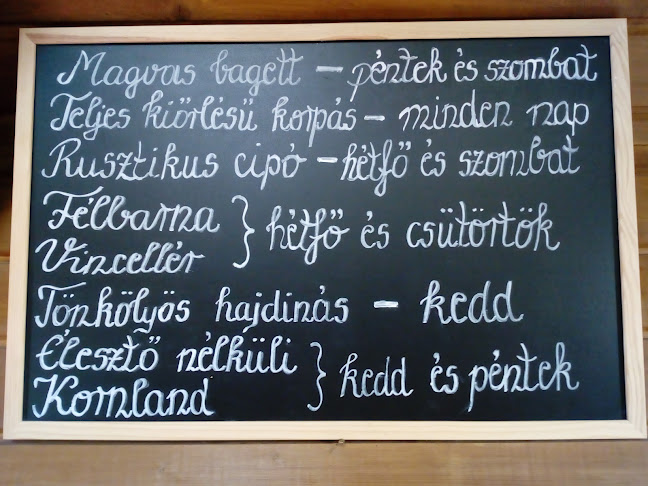 Magvas bagett – péntek és szombat
Teljes kiőrlésű korpás – minden nap
Rusztikus cipó – hétfő és szombat
Félbarna
Vincellér } hétfő és csütörtök
Tönkölyös hajdinás – kedd
Élesztő nélküli
Kornland } kedd és péntek